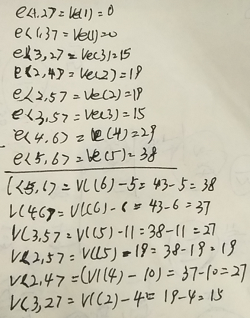 e<1,2>=Ve(1)=0
e<1,3>=Ve(1)=0
e<3,2>=Ve(3)=15
e<2,4>=Ve(2)=19
e<2,5>=Ve(2)=19
e<3,5>=Ve(3)=15
e<4,6>=Ve(4)=29
e<5,6>=Ve(5)=38
l<5,6>=Vl(6)-5=43-5=38
Vl<4,6>=Vl(6)-6=43-6=37
Vl<3,5>=Vl(5)-11=38-11=27
Vl<2,5>=Vl(5)-19=38-19=19
Vl<2,4>=(Vl(4)-10)=37-10=27
Vl<3,2>=Vl(2)-4=19-4=15